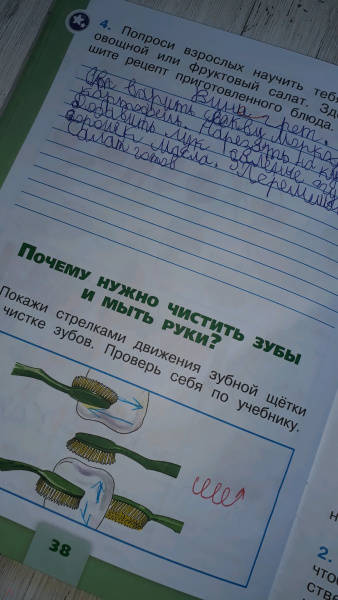 4. Попроси взрослых научить теб
овощной или фруктовый салат. Зд
шите рецепт приготовленного блюда.
Винегрет.
варить свеклу, морко
картофель. Нарезать на ку
Добавить лук, соленые ог
горошек, масло. Перемеша
Салат готов
ПОЧЕМУ НУЖНО ЧИСТИТЬ ЗУБЫ
И МЫТЬ РУКИ?
Покажи стрелками движения зубной щётки
чистке зубов. Проверь себя по учебнику.
38
2.
что
стве